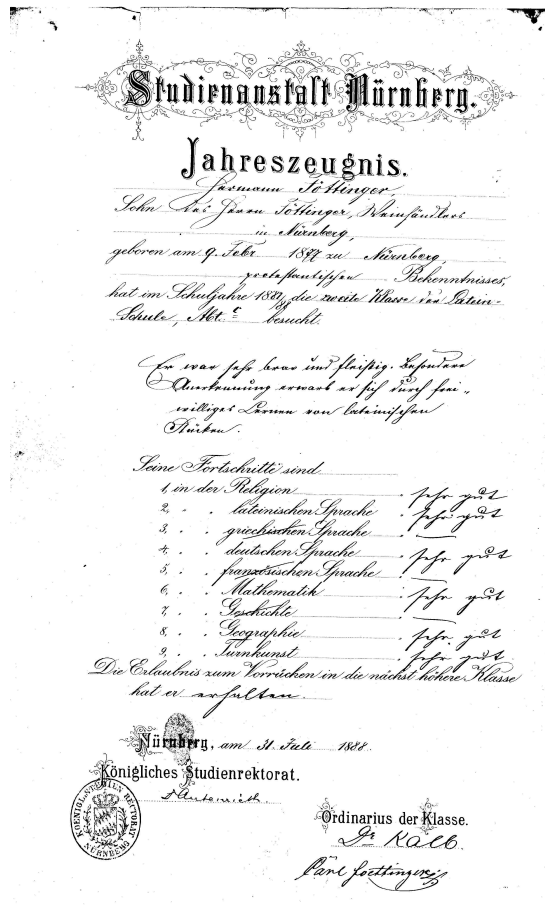 Studienanstalt Nürnberg.
Jahreszeugnis.
Hermann Föttinger,
Sohn des Herrn Föttinger, Weinhändlers
in Nürnberg,
geboren am 9. Febr 1877 zu Nürnberg,
protestantischen Bekenntnisses,
hat im Schuljahre 1887/88 die zweite Klasse der Latein-
Schule, Abt. c besucht.
Er war sehr brav und fleißig. Besondere
Anerkennung erwarb er sich durch frei-
williges Lernen von lateinischen
Stücken.
Seine Fortschritte sind
1, in der Religion sehr gut
2, " " lateinischen Sprache sehr gut
3, " " griechischen Sprache —
4, " " deutschen Sprache sehr gut
5, " " französischen Sprache —
6, " " Mathematik sehr gut
7, " " Geschichte —
8, " " Geographie sehr gut
9, " " Turnkunst sehr gut
Die Erlaubnis zum Vorrücken in die nächst höhere Klasse
hat er erhalten.
Nürnberg, am 31. Juli 1888.
Königliches Studienrektorat.
Dr Autenrieth.
KOENIGL. STUDIEN RECTORAT
NÜRNBERG
Ordinarius der Klasse.
Dr Kalb.
Carl Foettinger